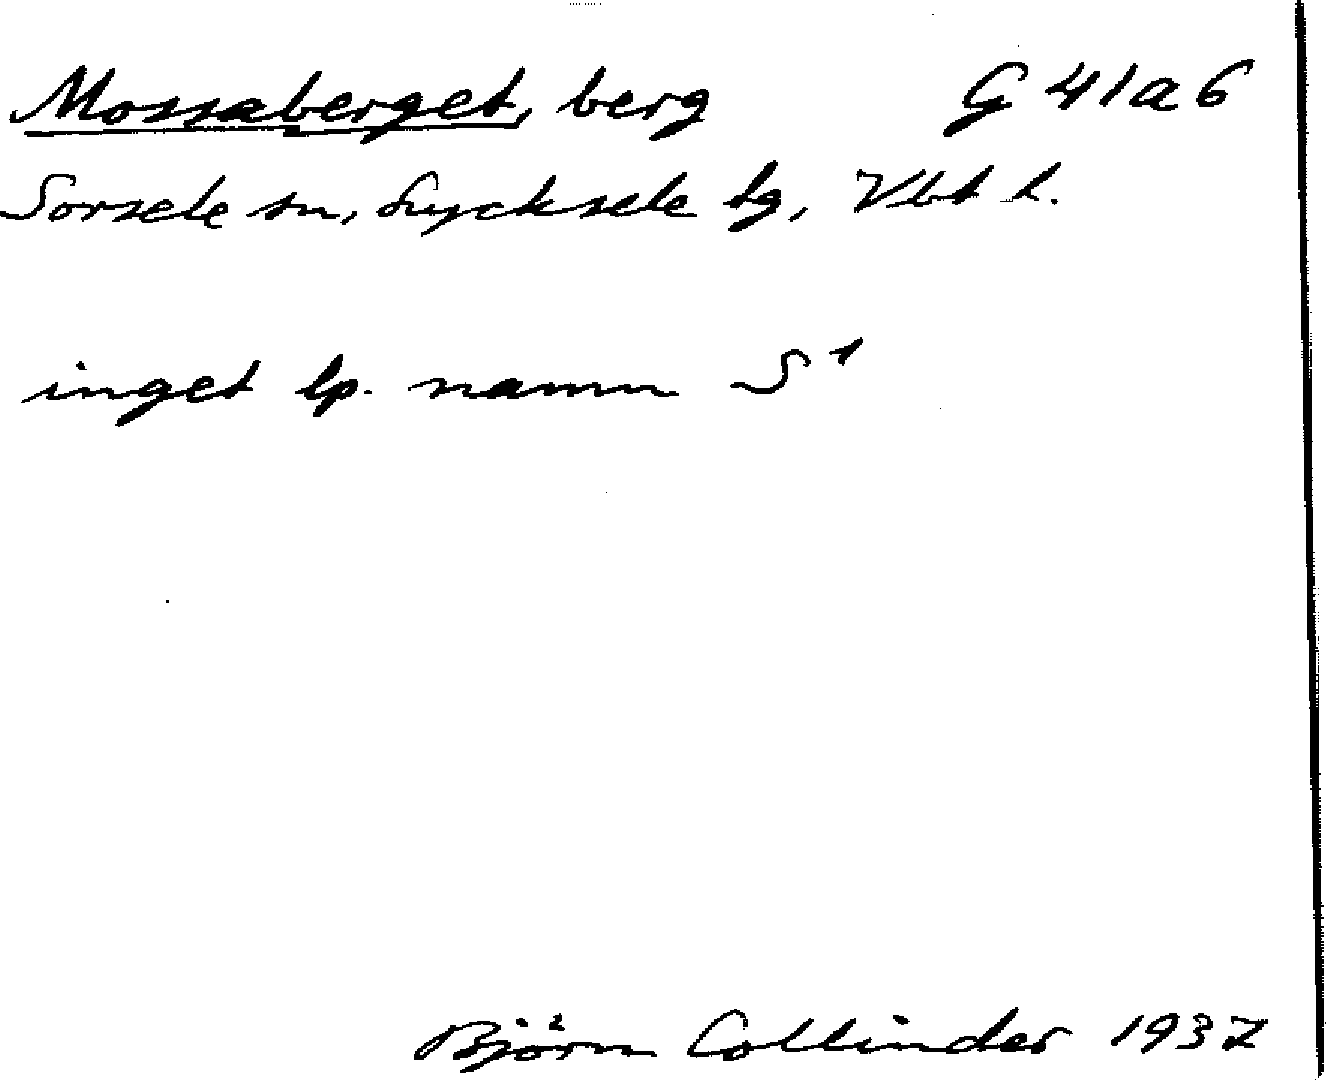 Mossaberget, berg G 41 a 6
Sorsele sn, Lycksele tg, Vbt l.
inget lp. namn S 1
Björn Collinder 1937